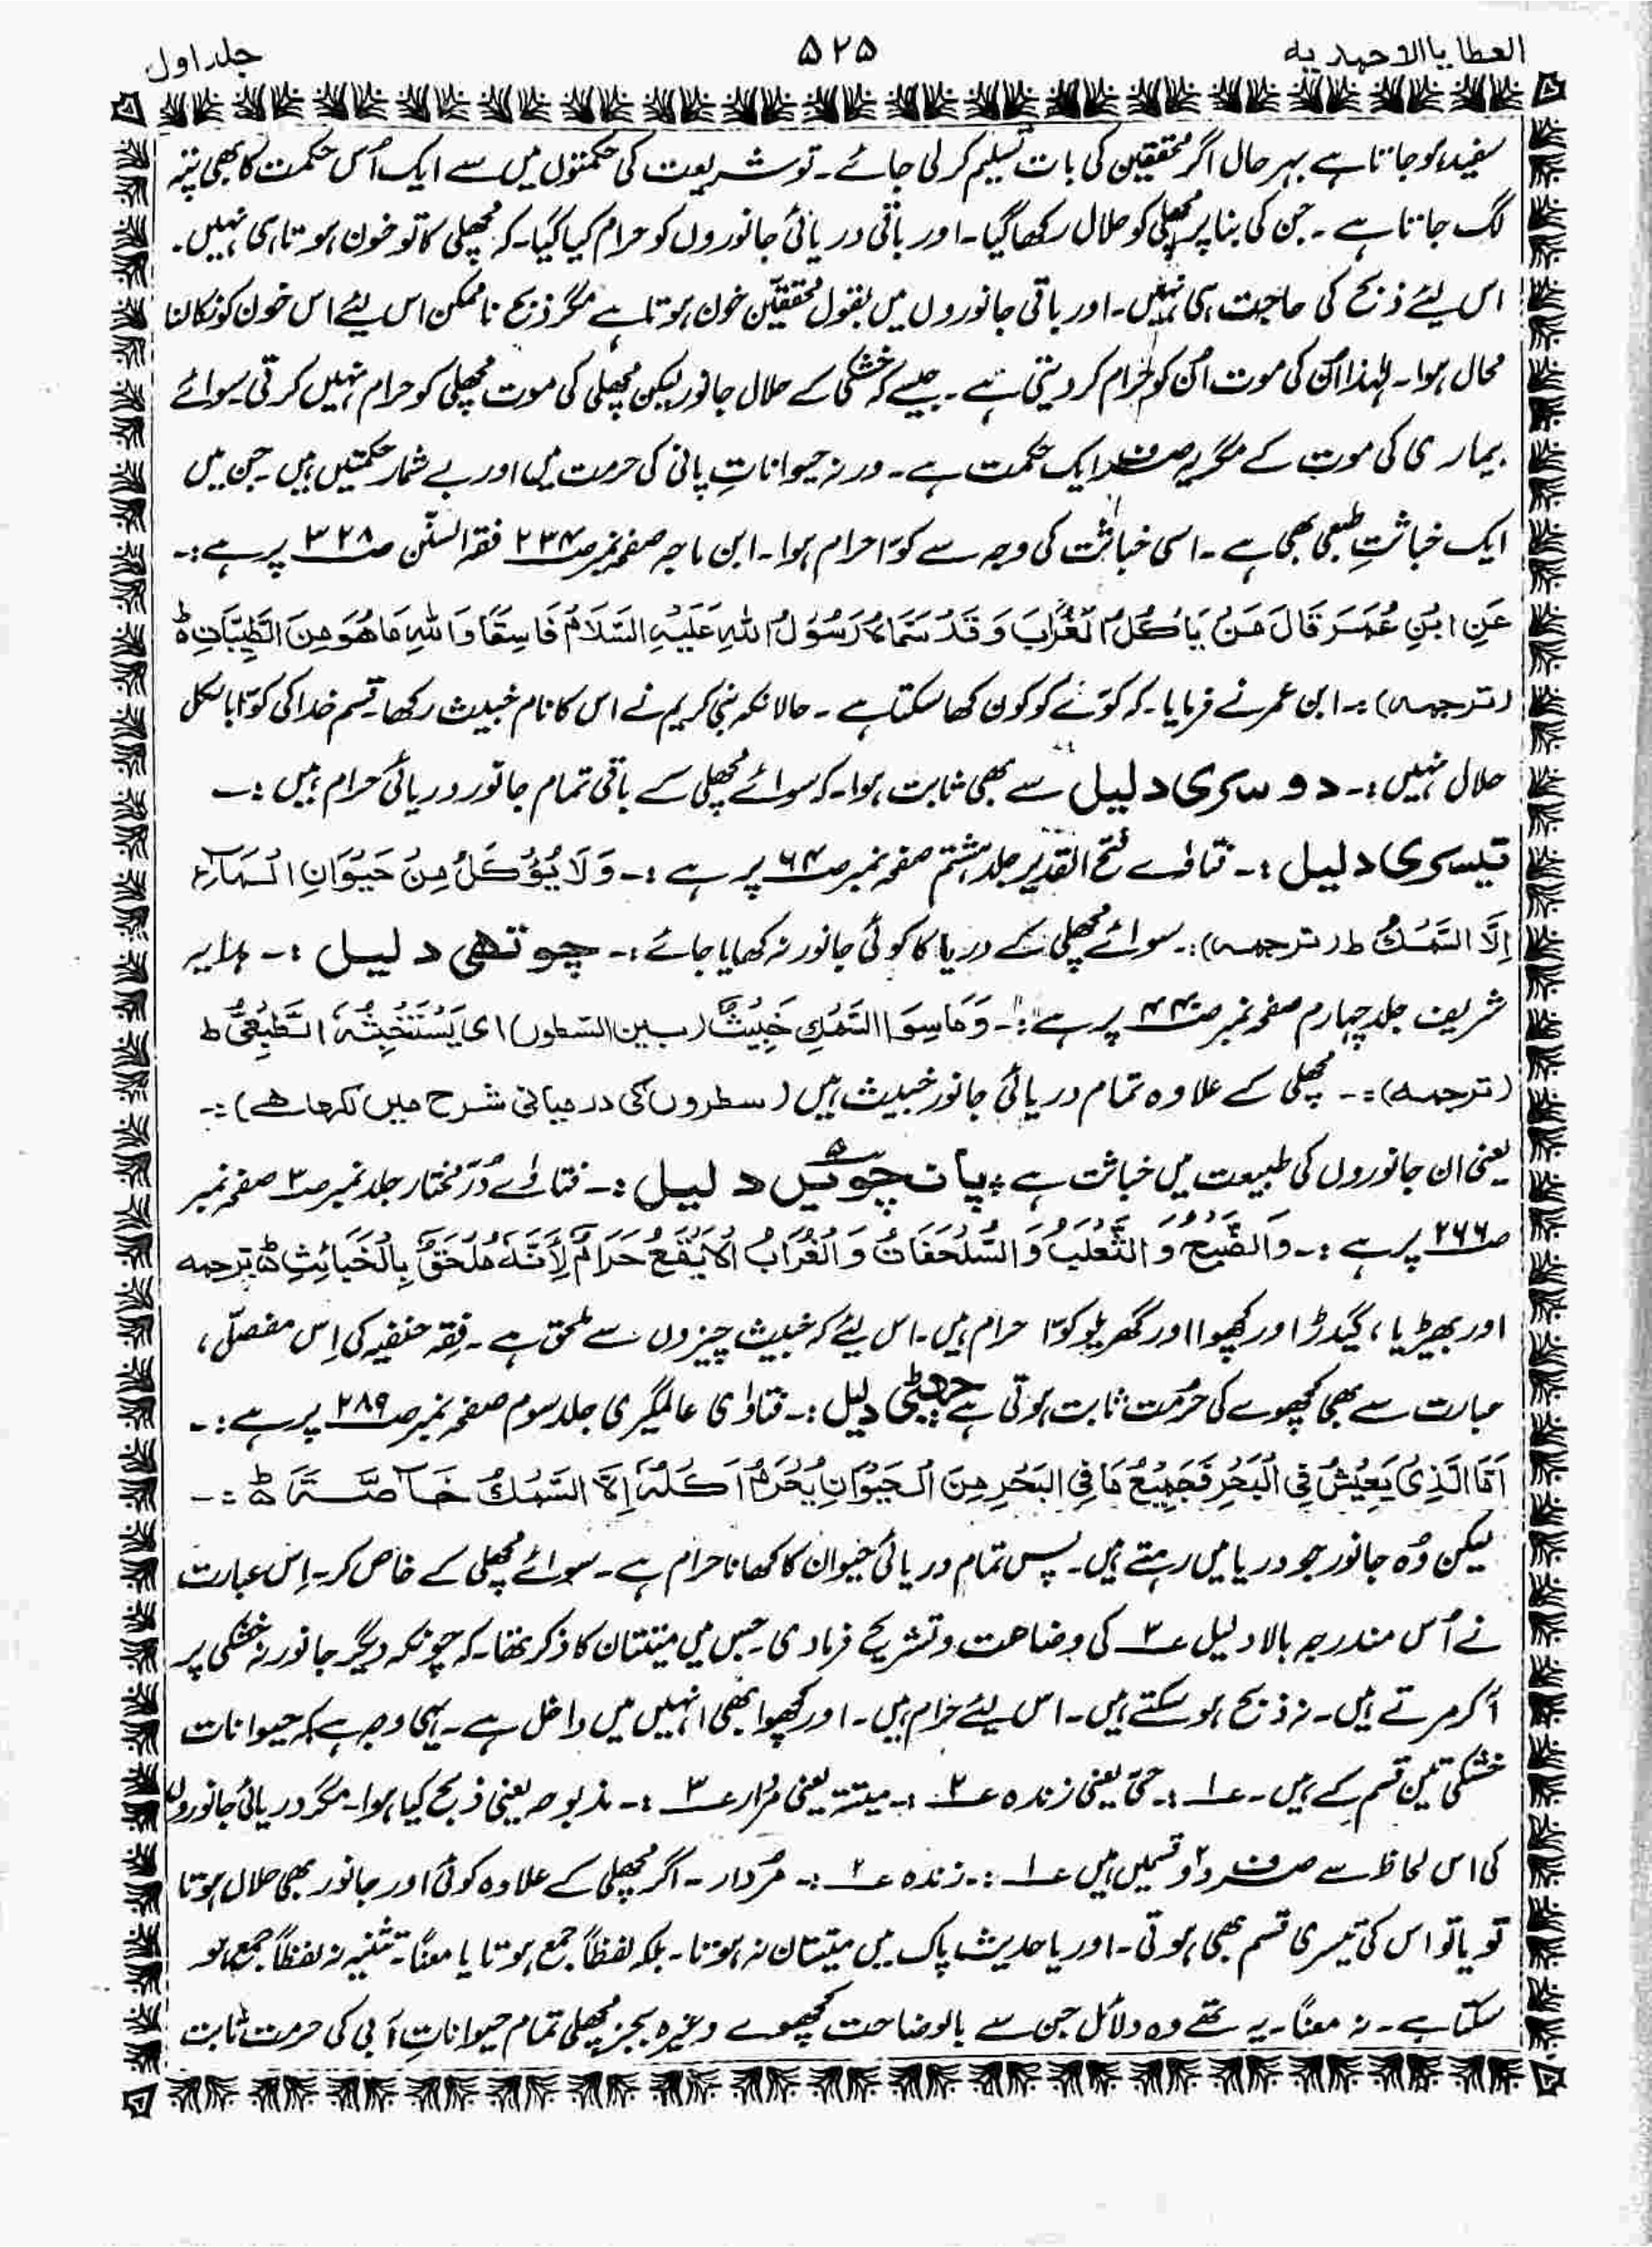 العطایا الاحمدیہ ۵۲۵ جلد اول
سفید ہو جاتا ہے بہر حال اگر محققین کی بات تسلیم کر لی جائے۔ تو شریعت کی حکمتوں میں سے ایک اُس حکمت کا بھی پتہ
لگ جاتا ہے۔ جن کی بنا پر مچھلی کو حلال رکھا گیا۔ اور باقی دریائی جانوروں کو حرام کیا گیا۔ کہ مچھلی کا تو خون ہوتا ہی نہیں۔
اس لیئے ذبح کی حاجت ہی نہیں۔ اور باقی جانوروں میں بقول محققین خون ہوتا ہے مگر ذبح نا ممکن اس لیئے اس خون کو نکالنا
محال ہوا۔ لہٰذا اُن کی موت اُن کو حرام کر دیتی ہے۔ جیسے کہ خشکی کے حلال جانور لیکن مچھلی کی موت مچھلی کو حرام نہیں کرتی سوائے
بیماری کی موت کے مگر یہ صرف ایک حکمت ہے۔ ورنہ حیواناتِ پانی کی حرمت میں اور بے شمار حکمتیں ہیں جن میں
ایک خباثتِ طبعی بھی ہے۔ اسی خباثت کی وجہ سے کوّا حرام ہوا۔ ابن ماجہ صفحہ نمبر صـ۲۳۴ فقہ السنّن صـ۳۲۸ پر ہے:۔
عَنِ ابْنِ عُمَرَ قَالَ مَنْ یَاْکُلُ الْغُرَابَ وَقَدْ سَمَّاہُ رَسُوْلُ اللہِ عَلَیْہِ السَّلَامُ فَاسِقًا وَاللہِ مَا ھُوَ مِنَ الطَّیِّبَاتِ ط
(ترجمہ):۔ ابن عمر نے فرمایا۔ کہ کوّے کو کون کھا سکتا ہے۔ حالانکہ نبی کریم نے اس کا نام خبیث رکھا۔ قسم خدا کی کوّا بالکل
حلال نہیں:۔ دوسری دلیل سے بھی ثابت ہوا۔ کہ سوائے مچھلی کے باقی تمام جانور دریائی حرام ہیں:۔
تیسری دلیل:۔ فتاوٰے فتح القدیر جلد ہشتم صفحہ نمبر صـ۶۴ پر ہے:۔ وَلَا یُؤْکَلُ مِنْ حَیْوَانِ الْمَاءِ
اِلَّا السَّمَکُ ط (ترجمہ):۔ سوائے مچھلی کے دریا کا کوئی جانور نہ کھایا جائے:۔ چوتھی دلیل:۔ ہدایہ
شریف جلد چہارم صفحہ نمبر صـ۴۴ پر ہے:۔ وَمَا سِوَا السَّمَکِ خَبِیْثٌ (بین السّطور) ای یَسْتَخْبِثُہُ الطَّبْعِیُّ ط
(ترجمہ):۔ مچھلی کے علاوہ تمام دریائی جانور خبیث ہیں (سطروں کی درمیانی شرح میں لکھا ہے):۔
یعنی ان جانوروں کی طبیعت میں خباثت ہے: پانچویں ۵ دلیل:۔ فتاوٰے دُرّ مختار جلد نمبر صـ۳ صفحہ نمبر
صـ۲۶۶ پر ہے:۔ وَالضَّبْعُ وَ الثَّعْلَبُ وَالسُّلْحَفَاتُ وَالْغُرَابُ الْاَبْقَعُ حَرَامٌ لِاَنَّہٗ مُلْحَقٌ بِالْخَبَائِثِ ط ترجمہ
اور بھیڑیا، گیدڑ اور کچھوا اور گھریلو کوّا حرام ہیں۔ اس لیئے کہ خبیث چیزوں سے ملحق ہے۔ فقہ حنفیہ کی اِس مفصّل،
عبارت سے بھی کچھوے کی حرمت ثابت ہوتی ہے چھٹی دلیل:۔ فتاوٰی عالمگیری جلد سوم صفحہ نمبر صـ۲۸۹ پر ہے:۔
اَمَّا الَّذِیْ یَعِیْشُ فِی الْبَحْرِ فَجَمِیْعُ مَا فِی الْبَحْرِ مِنَ الْحَیْوَانِ یُحْرَمُ اَکْلُہٗ اِلَّا السَّمَکُ خَاصَّۃً ط:۔
لیکن وُہ جانور جو دریا میں رہتے ہیں۔ پس تمام دریائی حیوان کا کھانا حرام ہے۔ سوائے مچھلی کے خاص کر۔ اِس عبارت
نے اُس مندرجہ بالا دلیل عـ۲ کی وضاحت و تشریح فرما دی۔ جس میں میتتان کا ذکر تھا۔ کہ چونکہ دیگر جانور نہ خشکی پر
آ کر مرتے ہیں۔ نہ ذبح ہو سکتے ہیں۔ اس لیئے حرام ہیں۔ اور کچھوا بھی انہیں میں داخل ہے۔ یہی وجہ ہے کہ حیوانات
خشکی تین قسم کے ہیں۔ عـ۱:۔ حیّ یعنی زندہ عـ۲:۔ میتتہ یعنی مُردار عـ۳:۔ مذبوحہ یعنی ذبح کیا ہوا۔ مگر دریائی جانوروں
کی اس لحاظ سے صرف دو۲ قسمیں ہیں عـ۱:۔ زندہ عـ۲:۔ مُردار۔ اگر مچھلی کے علاوہ کوئی اور جانور بھی حلال ہوتا
تو یا تو اس کی تیسری قسم بھی ہوتی۔ اور یا حدیث پاک میں میتتان نہ ہوتا۔ بلکہ لفظاً جمع ہوتا یا معنًا۔ تثنیہ نہ لفظاً جمع ہو
سکتا ہے۔ نہ معنًا۔ یہ تھے وہ دلائل جن سے بالوضاحت کچھوے وغیرہ بجز مچھلی تمام حیواناتِ آبی کی حرمت ثابت